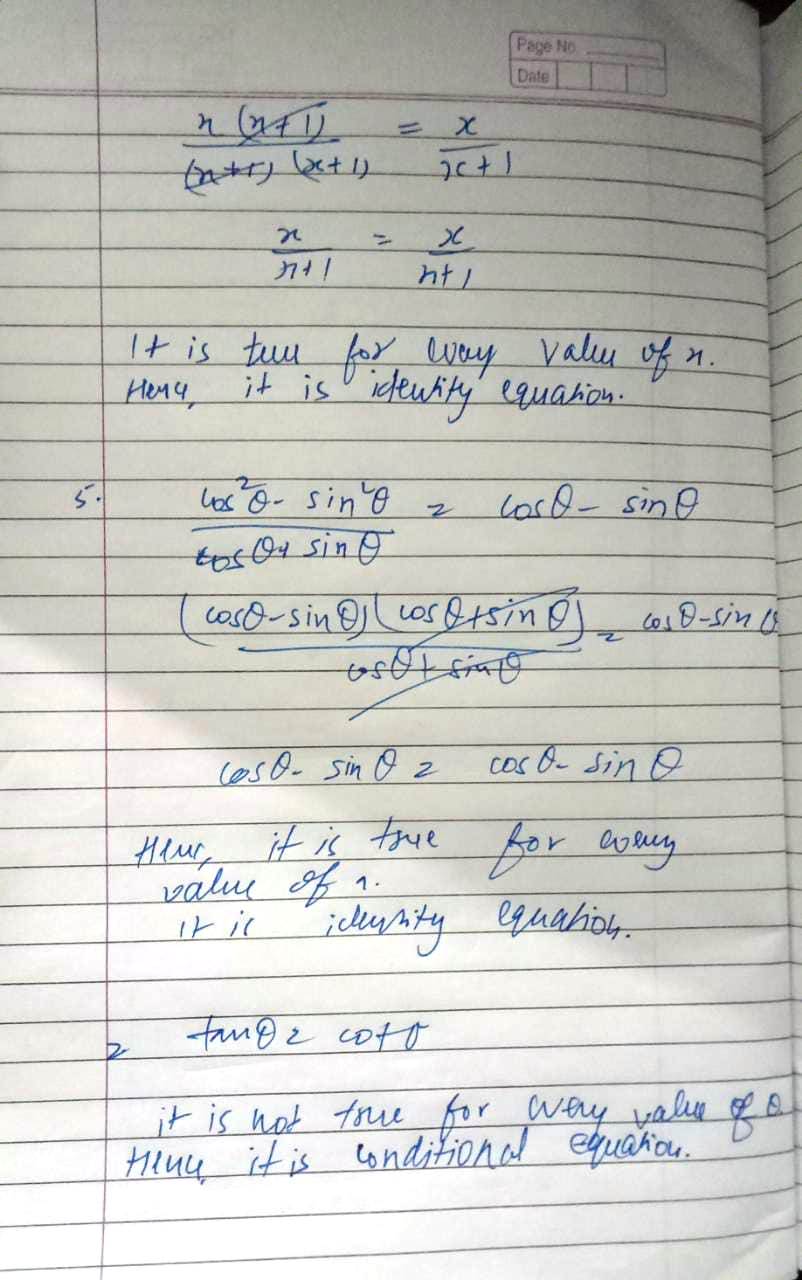 Page No.
Date
x (x+1) / (x+1) (x+1) = x / x+1
x / x+1 = x / x+1
It is true for every value of x.
Hence, it is identity equation.
5. cos²θ - sin²θ / cosθ + sinθ = cosθ - sinθ
(cosθ - sinθ) (cosθ + sinθ) / cosθ + sinθ = cosθ - sinθ
cosθ - sinθ = cosθ - sinθ
Hence, it is true for every
value of x.
it is identity equation.
2 tanθ = cotθ
it is not true for every value of θ
Hence it is conditional equation.